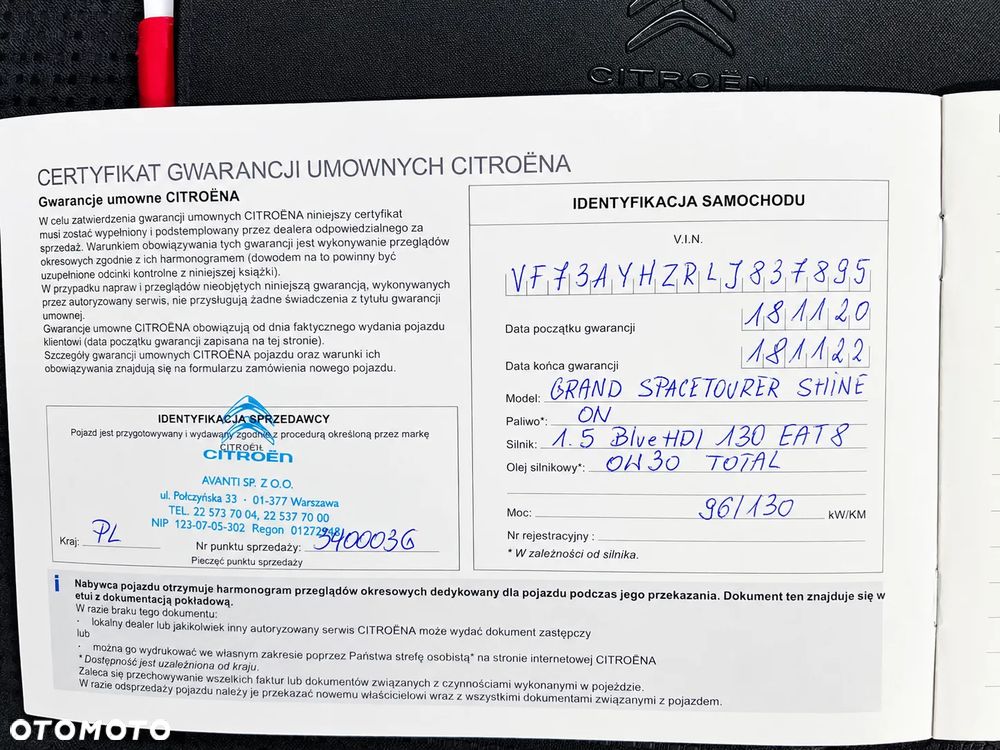 CITROËN
CERTYFIKAT GWARANCJI UMOWNYCH CITROËNA
Gwarancje umowne CITROËNA
W celu zatwierdzenia gwarancji umownych CITROËNA niniejszy certyfikat
musi zostać wypełniony i podstemplowany przez dealera odpowiedzialnego za
sprzedaż. Warunkiem obowiązywania tych gwarancji jest wykonywanie przeglądów
okresowych zgodnie z ich harmonogramem (dowodem na to powinny być
uzupełnione odcinki kontrolne z niniejszej książki).
W przypadku napraw i przeglądów nieobjętych niniejszą gwarancją, wykonywanych
przez autoryzowany serwis, nie przysługują żadne świadczenia z tytułu gwarancji
umownej.
Gwarancje umowne CITROËNA obowiązują od dnia faktycznego wydania pojazdu
klientowi (data początku gwarancji zapisana na tej stronie).
Szczegóły gwarancji umownych CITROËNA pojazdu oraz warunki ich
obowiązywania znajdują się na formularzu zamówienia nowego pojazdu.
IDENTYFIKACJA SPRZEDAWCY
Pojazd jest przygotowywany i wydawany zgodnie z procedurą określoną przez markę
CITROËN
CITROËN
AVANTI SP. Z O.O.
ul. Połczyńska 33 · 01-377 Warszawa
TEL. 22 573 70 04, 22 537 70 00
NIP 123-07-05-302 Regon 01272948
Kraj: PL
Nr punktu sprzedaży: 340003G
Pieczęć punktu sprzedaży
IDENTYFIKACJA SAMOCHODU
V.I.N.
VF73AYHZRLJ837895
Data początku gwarancji 181120
Data końca gwarancji 181122
Model: GRAND SPACETOURER SHINE
Paliwo*: ON
Silnik: 1.5 BlueHDI 130 EAT8
Olej silnikowy*: 0W30 TOTAL
Moc: 96/130 kW/KM
Nr rejestracyjny :
* W zależności od silnika.
i
Nabywca pojazdu otrzymuje harmonogram przeglądów okresowych dedykowany dla pojazdu podczas jego przekazania. Dokument ten znajduje się w
etui z dokumentacją pokładową.
W razie braku tego dokumentu:
· lokalny dealer lub jakikolwiek inny autoryzowany serwis CITROËNA może wydać dokument zastępczy
lub
· można go wydrukować we własnym zakresie poprzez Państwa strefę osobistą* na stronie internetowej CITROËNA
* Dostępność jest uzależniona od kraju.
Zaleca się przechowywanie wszelkich faktur lub dokumentów związanych z czynnościami wykonanymi w pojeździe.
W razie odsprzedaży pojazdu należy je przekazać nowemu właścicielowi wraz z wszystkimi dokumentami związanymi z pojazdem.
OTOMOTO